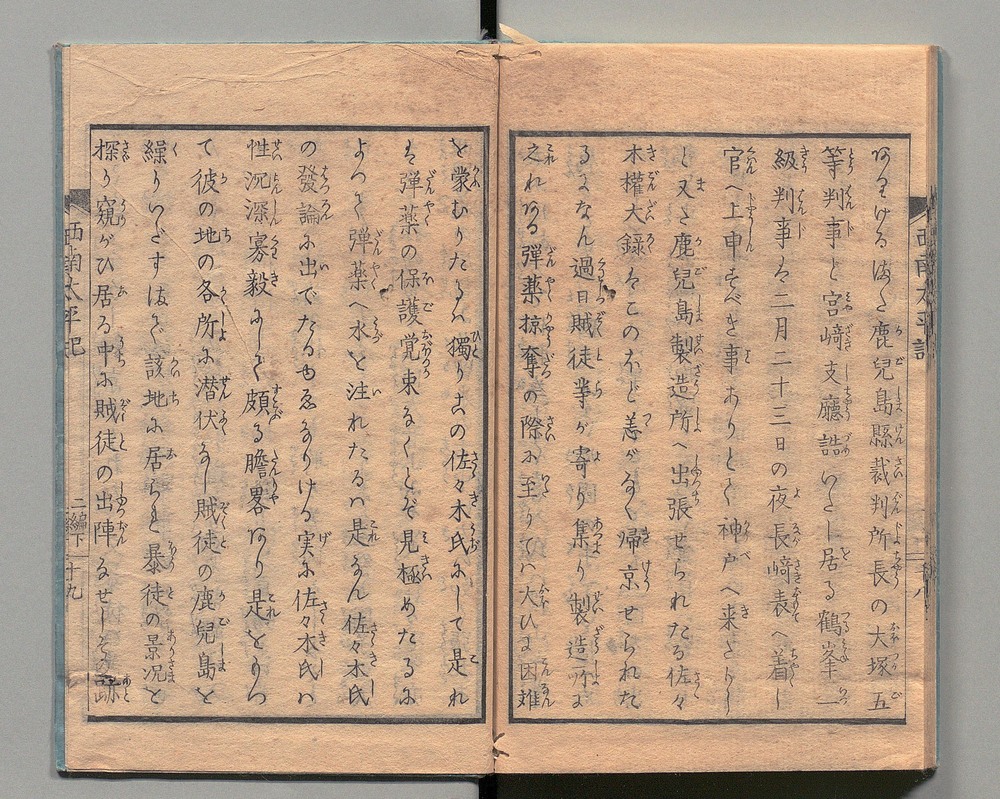 ありける爰に鹿兒島縣裁判所長の大塚五
等判事と宮﨑支廳詰いたし居る鶴峯一
級判事は二月二十三日の夜長﨑表へ着し
官へ上申すべき事ありとて神戸へ来たりし
と又た鹿兒島製造所へ出張せられたる佐々
木權大録はこのほど恙がなく帰京せられた
るよしなん過日賊徒等が寄り集り製造所に
之れある弾薬掠奪の際に至りてハ大ひに困難
を蒙むりたるハ獨り右の佐々木氏にして是れ
は弾薬の保護覚束なくとぞ見極めたるに
よつて弾薬へ水を注れたるハ是なん佐々木氏
の發論に出でたるゆゑなりける実に佐々木氏ハ
性沉深寡毅にして頗る膽畧あり是をもつ
て彼の地の各所に潜伏なし賊徒の鹿兒島を
繰りいだすまで該地に居られ暴徒の景况を
探り窺がひ居る中に賊徒の出陣なせしその跡
西南太平記
西南太平記
二編下
十九